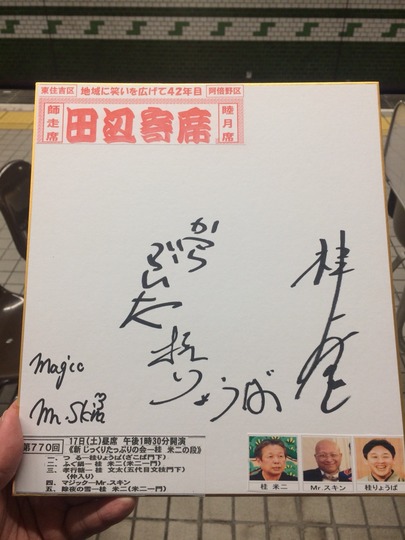 東住吉区 地域に笑いを広げて42年目 阿倍野区
師走席 田辺寄席 睦月席
かつら
ぶん太
桂りょうば
Magic
Mr.スキン
第770回
17日(土)昼席 午後1時30分開演
《新じっくりたっぷりの会―桂 米二の段》
一、つる―桂りょうば(ざこば門下)
二、ふぐ鍋―桂 米二(米二門)
三、孝行糖―桂 文太(五代目文枝門下)
(仲入り)
四、マジック―Mr.スキン
五、除夜の雪―桂 米二(米朝門下)
桂 米二
Mr.スキン
桂りょうば